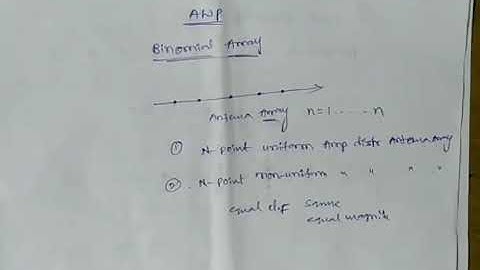 AWP
Binomial Array
Antenna Array n=1.....n
① N-point uniform Amp distr Antenna Array
② N-point non-uniform " " " "
equal dif same
equal magnite